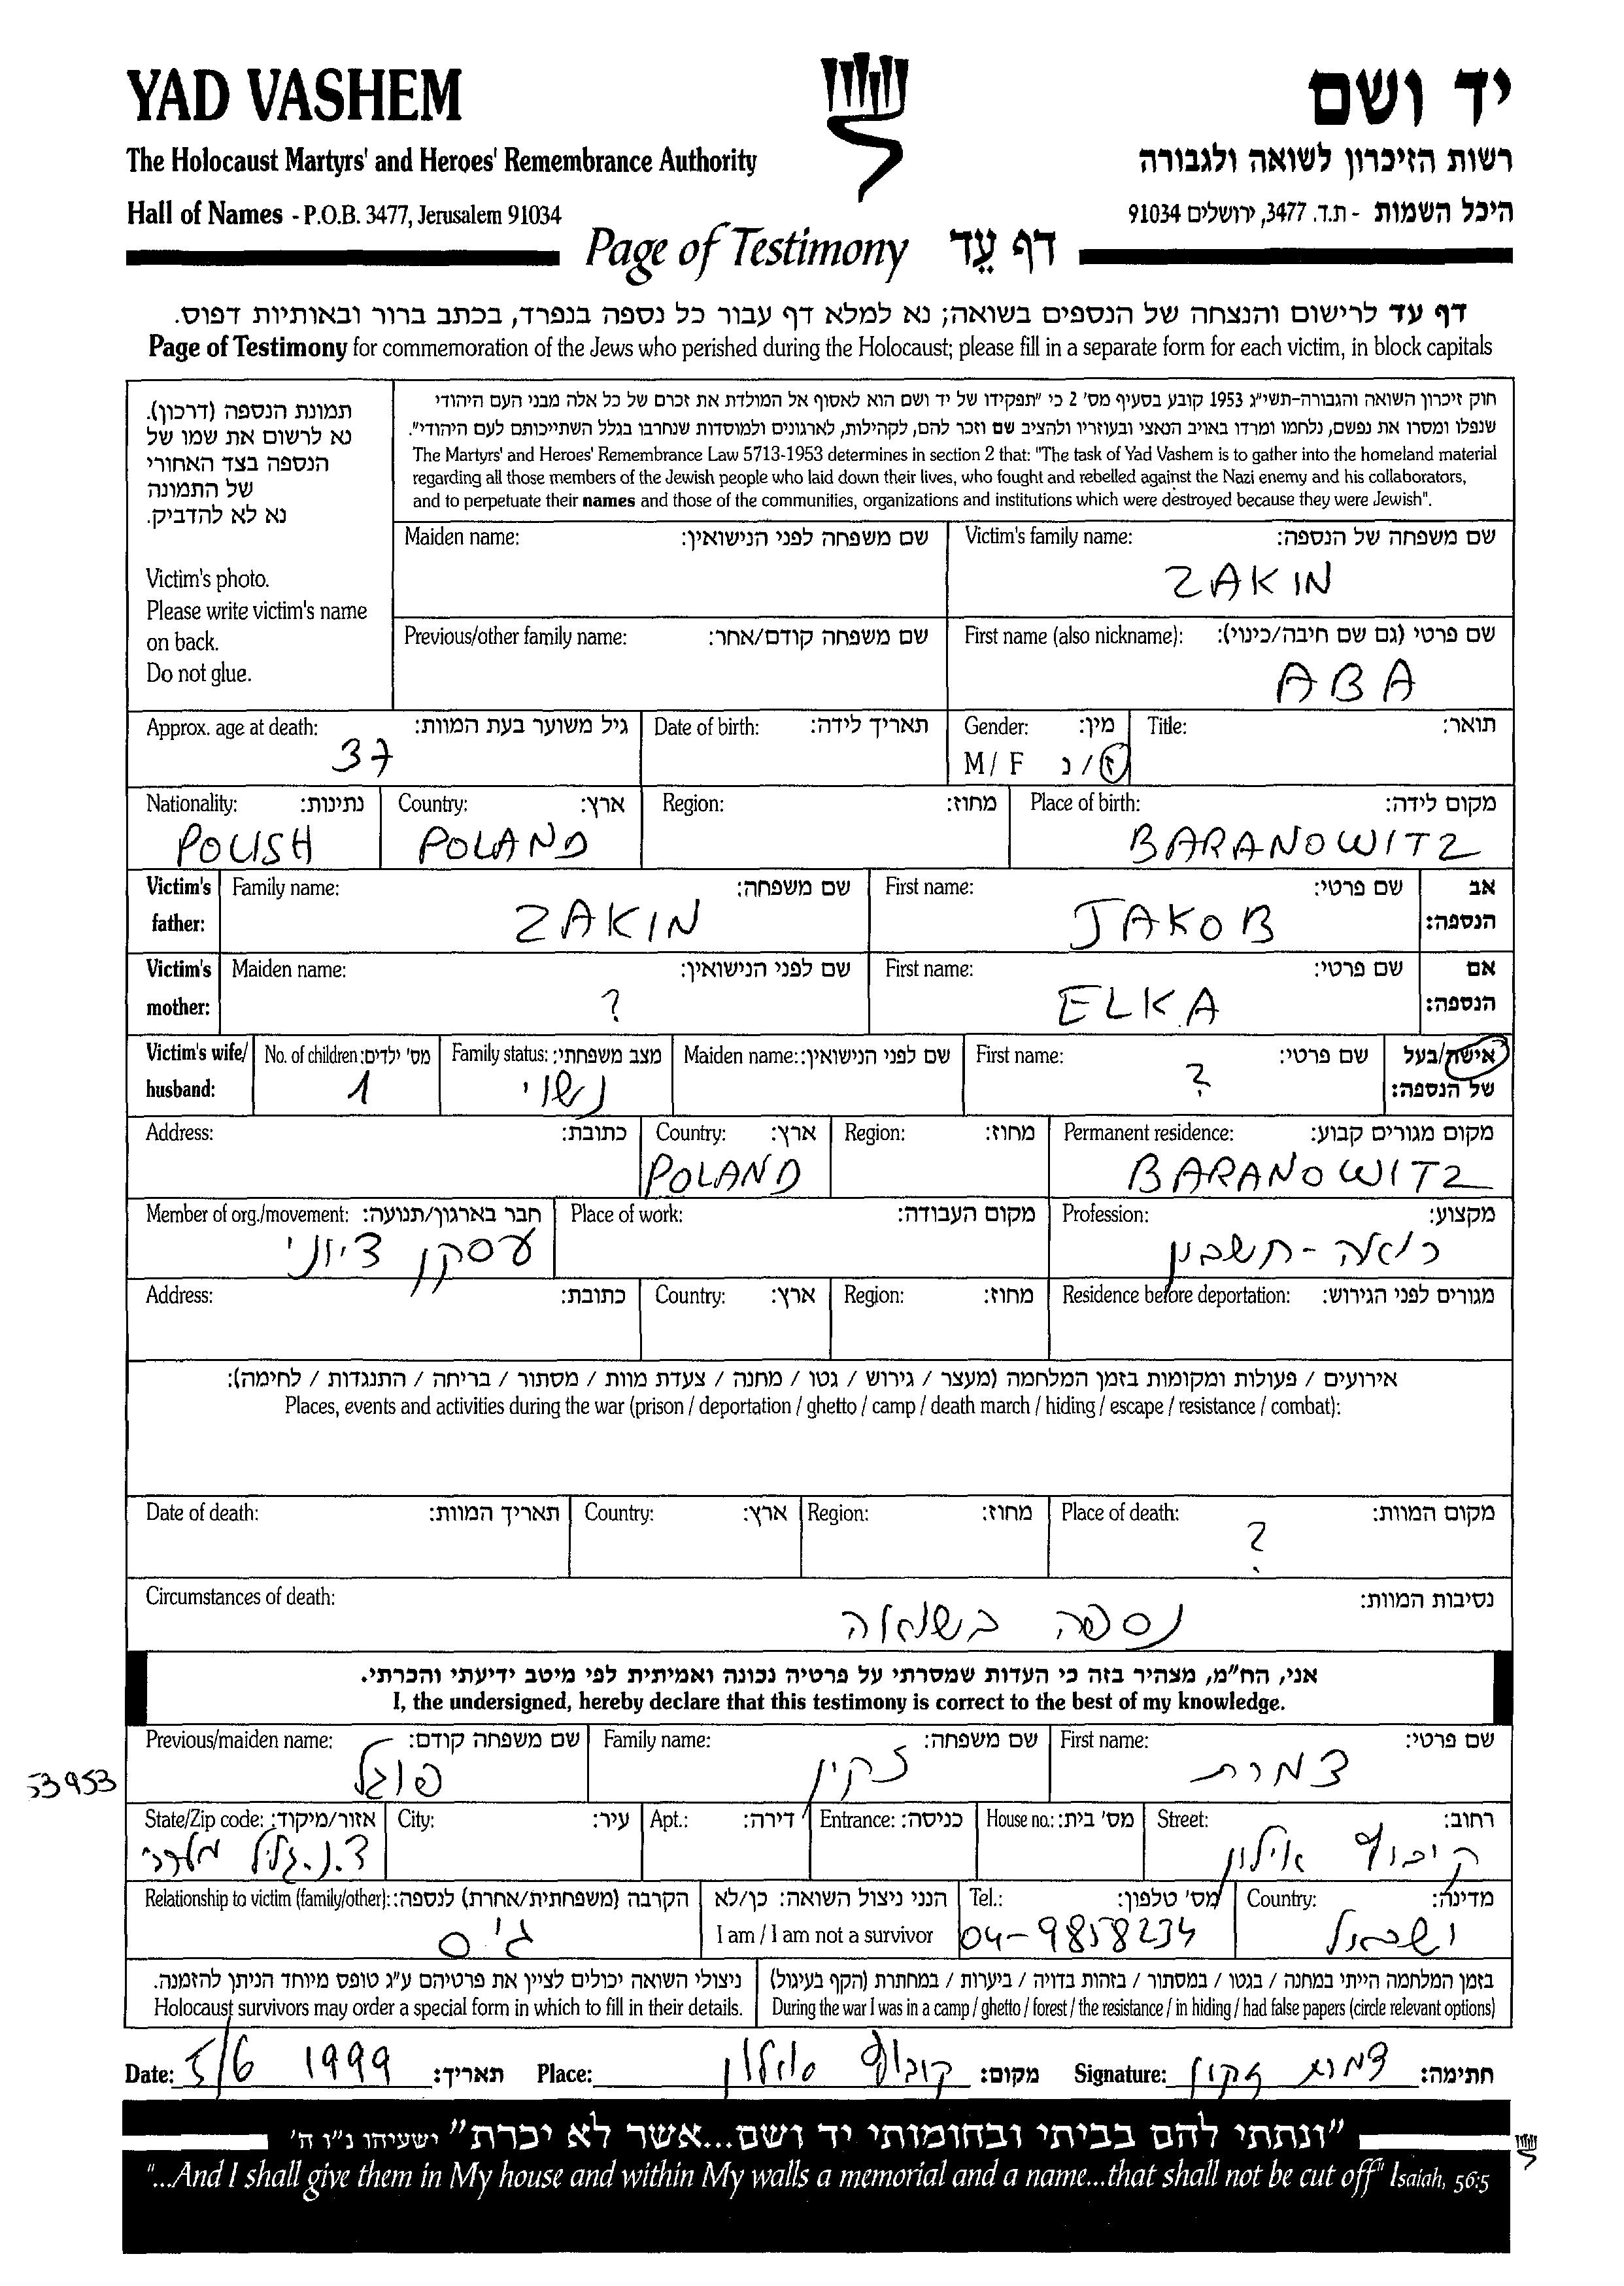 YAD VASHEM
יד ושם
The Holocaust Martyrs' and Heroes' Remembrance Authority
רשות הזיכרון לשואה ולגבורה
Hall of Names - P.O.B. 3477, Jerusalem 91034
היכל השמות - ת.ד. 3477, ירושלים 91034
Page of Testimony דף עֵד
דף עד לרישום והנצחה של הנספים בשואה; נא למלא דף עבור כל נספה בנפרד, בכתב ברור ובאותיות דפוס.
Page of Testimony for commemoration of the Jews who perished during the Holocaust; please fill in a separate form for each victim, in block capitals
תמונת הנספה (דרכון).
נא לרשום את שמו של
הנספה בצד האחורי
של התמונה
נא לא להדביק.
Victim's photo.
Please write victim's name
on back.
Do not glue.
חוק זיכרון השואה והגבורה-תשי"ג 1953 קובע בסעיף מס' 2 כי "תפקידו של יד ושם הוא לאסוף אל המולדת את זכרם של כל אלה מבני העם היהודי
שנפלו ומסרו את נפשם, נלחמו ומרדו באויב הנאצי ובעוזריו ולהציב שם וזכר להם, לקהילות, לארגונים ולמוסדות שנחרבו בגלל השתייכותם לעם היהודי".
The Martyrs' and Heroes' Remembrance Law 5713-1953 determines in section 2 that: "The task of Yad Vashem is to gather into the homeland material
regarding all those members of the Jewish people who laid down their lives, who fought and rebelled against the Nazi enemy and his collaborators,
and to perpetuate their names and those of the communities, organizations and institutions which were destroyed because they were Jewish".
Maiden name: שם משפחה לפני הנישואין:
Victim's family name: שם משפחה של הנספה:
ZAKIN
Previous/other family name: שם משפחה קודם/אחר:
First name (also nickname): שם פרטי (גם שם חיבה/כינוי):
ABA
Approx. age at death: גיל משוער בעת המוות:
37
Date of birth: תאריך לידה:
Gender: מין:
M / F ז / נ
Title: תואר:
Nationality: נתינות:
POLISH
Country: ארץ:
POLAND
Region: מחוז:
Place of birth: מקום לידה:
BARANOWITZ
Victim's father:
Family name: שם משפחה:
ZAKIN
First name: שם פרטי:
JAKOB
אב הנספה:
Victim's mother:
Maiden name: שם לפני הנישואין:
?
First name: שם פרטי:
ELKA
אם הנספה:
Victim's wife/ husband:
No. of children: מס' ילדים:
1
Family status: מצב משפחתי:
נשוי
Maiden name: שם לפני הנישואין:
First name: שם פרטי:
?
אישה/בעל של הנספה:
Address: כתובת:
Country: ארץ:
POLAND
Region: מחוז:
Permanent residence: מקום מגורים קבוע:
BARANOWITZ
Member of org./movement: חבר בארגון/תנועה:
עסקן ציוני
Place of work: מקום העבודה:
Profession: מקצוע:
רואה-חשבון
Address: כתובת:
Country: ארץ:
Region: מחוז:
Residence before deportation: מגורים לפני הגירוש:
אירועים / פעולות ומקומות בזמן המלחמה (מעצר / גירוש / גטו / מחנה / צעדת מוות / מסתור / בריחה / התנגדות / לחימה):
Places, events and activities during the war (prison / deportation / ghetto / camp / death march / hiding / escape / resistance / combat):
Date of death: תאריך המוות:
Country: ארץ:
Region: מחוז:
Place of death: מקום המוות:
?
Circumstances of death: נסיבות המוות:
נספה בשואה
אני, הח"מ, מצהיר בזה כי העדות שמסרתי על פרטיה נכונה ואמיתית לפי מיטב ידיעתי והכרתי.
I, the undersigned, hereby declare that this testimony is correct to the best of my knowledge.
Previous/maiden name: שם משפחה קודם:
פוגל
Family name: שם משפחה:
זקין
First name: שם פרטי:
צמרת
53953
State/Zip code: אזור/מיקוד:
ד.נ. גליל מערבי
City: עיר:
Apt.: דירה:
Entrance: כניסה:
House no.: מס' בית:
Street: רחוב:
קיבוץ אילון
Relationship to victim (family/other): הקרבה (משפחתית/אחרת) לנספה:
גיס
הנני ניצול השואה: כן/לא
I am / I am not a survivor
Tel.: מס' טלפון:
04-9858234
Country: מדינה:
ישראל
ניצולי השואה יכולים לציין את פרטיהם ע"ג טופס מיוחד הניתן להזמנה.
Holocaust survivors may order a special form in which to fill in their details.
בזמן המלחמה הייתי במחנה / בגטו / במסתור / בזהות בדויה / ביערות / במחתרת (הקף בעיגול)
During the war I was in a camp / ghetto / forest / the resistance / in hiding / had false papers (circle relevant options)
Date: 5/6 1999 תאריך: Place: קיבוץ אילון מקום: Signature: צמרת זקין חתימה:
"ונתתי להם בביתי ובחומותי יד ושם...אשר לא יכרת" ישעיהו נ"ו ה'
"...And I shall give them in My house and within My walls a memorial and a name...that shall not be cut off" Isaiah, 56:5